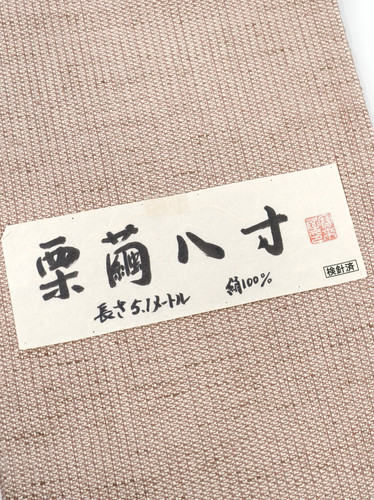 栗繭八寸
長さ5.1メートル 絹100%
検針済